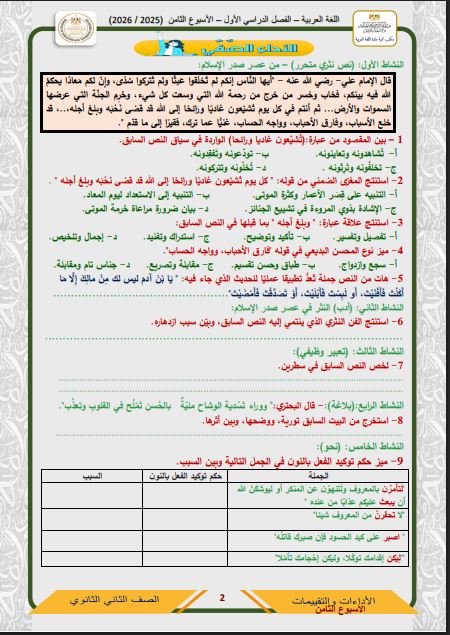 اللغة العربية – الفصل الدراسي الأول – الأسبوع الثامن (2025 / 2026)
الأداء الصفي
النشاط الأول: (نص نثري متحرر) – من عصر صدر الإسلام:
قال الإمام علي– رضي الله عنه – "أيها النَّاس إنكم لم تُخلقوا عبثًا ولم تُتركوا سُدًى، وإنَّ لكم معادًا يحكمُ
الله فيه بينكم، فخاب وخسر من خرج من رحمة الله التي وسعت كل شيء، وحُرم الجنَّة التي عرضها
السموات والأرض... ثم أنتم في كل يوم تُشيّعون غاديًا ورائحًا إلى الله قد قضى نَحْبَه وبلغ أجله،... قد
خلع الأسباب، وفارق الأحباب، وواجه الحساب، غنيًّا عما ترك، فقيرًا إلى ما قدَّم ".
1 – بين المقصود من عبارة:(تُشيّعون غاديا ورائحا) الواردة في سياق النص السابق.
أ– تُشاهدونه وتعاينونه. ب– تودّعونه وتفقدونه.
ج– تخلفُونه وترثونه. د– تُخلّونه وتتركونه.
2– استنتج المغزى الضمني من قوله: " كل يوم تُشيّعون غاديًا ورائحًا إلى الله قد قضى نَحْبَه وبلغ أجله ".
أ– التنبيه على قِصَر الأعمار وكثرة الموتى. ب– التنبيه إلى الاستعداد ليوم المعاد.
ج– الإشادة بذوي المروءة في تشييع الجنائز. د– بيان ضرورة مراعاة حُرمة الموتى.
3– استنتج علاقة عبارة: " وبلغ أجله " بما قبلها في النص السابق:
أ– تفصيل وتفسير. ب– تأكيد وتوضيح. ج– استدراك وتفنيد. د– إجمال وتلخيص.
4– ميز نوع المحسن البديعي في قوله "فارق الأحباب، وواجه الحساب".
أ– سجع وازدواج. ب– طباق وحسن تقسيم. ج– مقابلة وتصريع. د– جناس تام ومقابلة.
5– هات من النص جملة تُعدُّ تطبيقا عمليًا للحديث الذي جاء فيه: " يَا بْنَ آدمَ ليس لكَ مِنْ مالِكَ إلَّا مَا
أَكَلْتَ فَأَفْنَيْتَ، أو لبِسْتَ فَأَبْلَيْتَ، أَوْ تَصَدَّقْتَ فَأَمْضَيْتَ".
النشاط الثاني: (أدب) النثر في عصر صدر الإسلام:
6– استنتج الفن النثري الذي ينتمي إليه النص السابق، وبيّن سبب ازدهاره.
النشاط الثالث: (تعبير وظيفي):
7– لخص النص السابق في سطرين.
النشاط الرابع:(بلاغة):– قال البحتري: "ووراء تَسْدِية الوِشاح مليّةٌ بالحُسن تَمْلُح في القلوب وتعذُب".
8– استخرج من البيت السابق توريةً، ووضحها، وبين أثرها.
النشاط الخامس: (نحو):
9– ميز حكم توكيد الفعل بالنون في الجمل التالية وبين السبب.
الجملة حكم توكيد الفعل بالنون السبب
"لتأمرُنَّ بالمعروف ولتنهوُنَّ عن المنكر أو ليوشكَنَّ الله
أن يبعث عليكم عذابًا من عنده "
"لا تحقرنَّ من المعروف شيئا"
" اصبر على كيد الحسود فإن صبرك قاتلُه"
"ليكن إقدامك توكّلا، وليكن إحجامك تأمّلا"
الأداءات والتقييمات 2 الصف الثاني الثانوي
الأسبوع الثامن